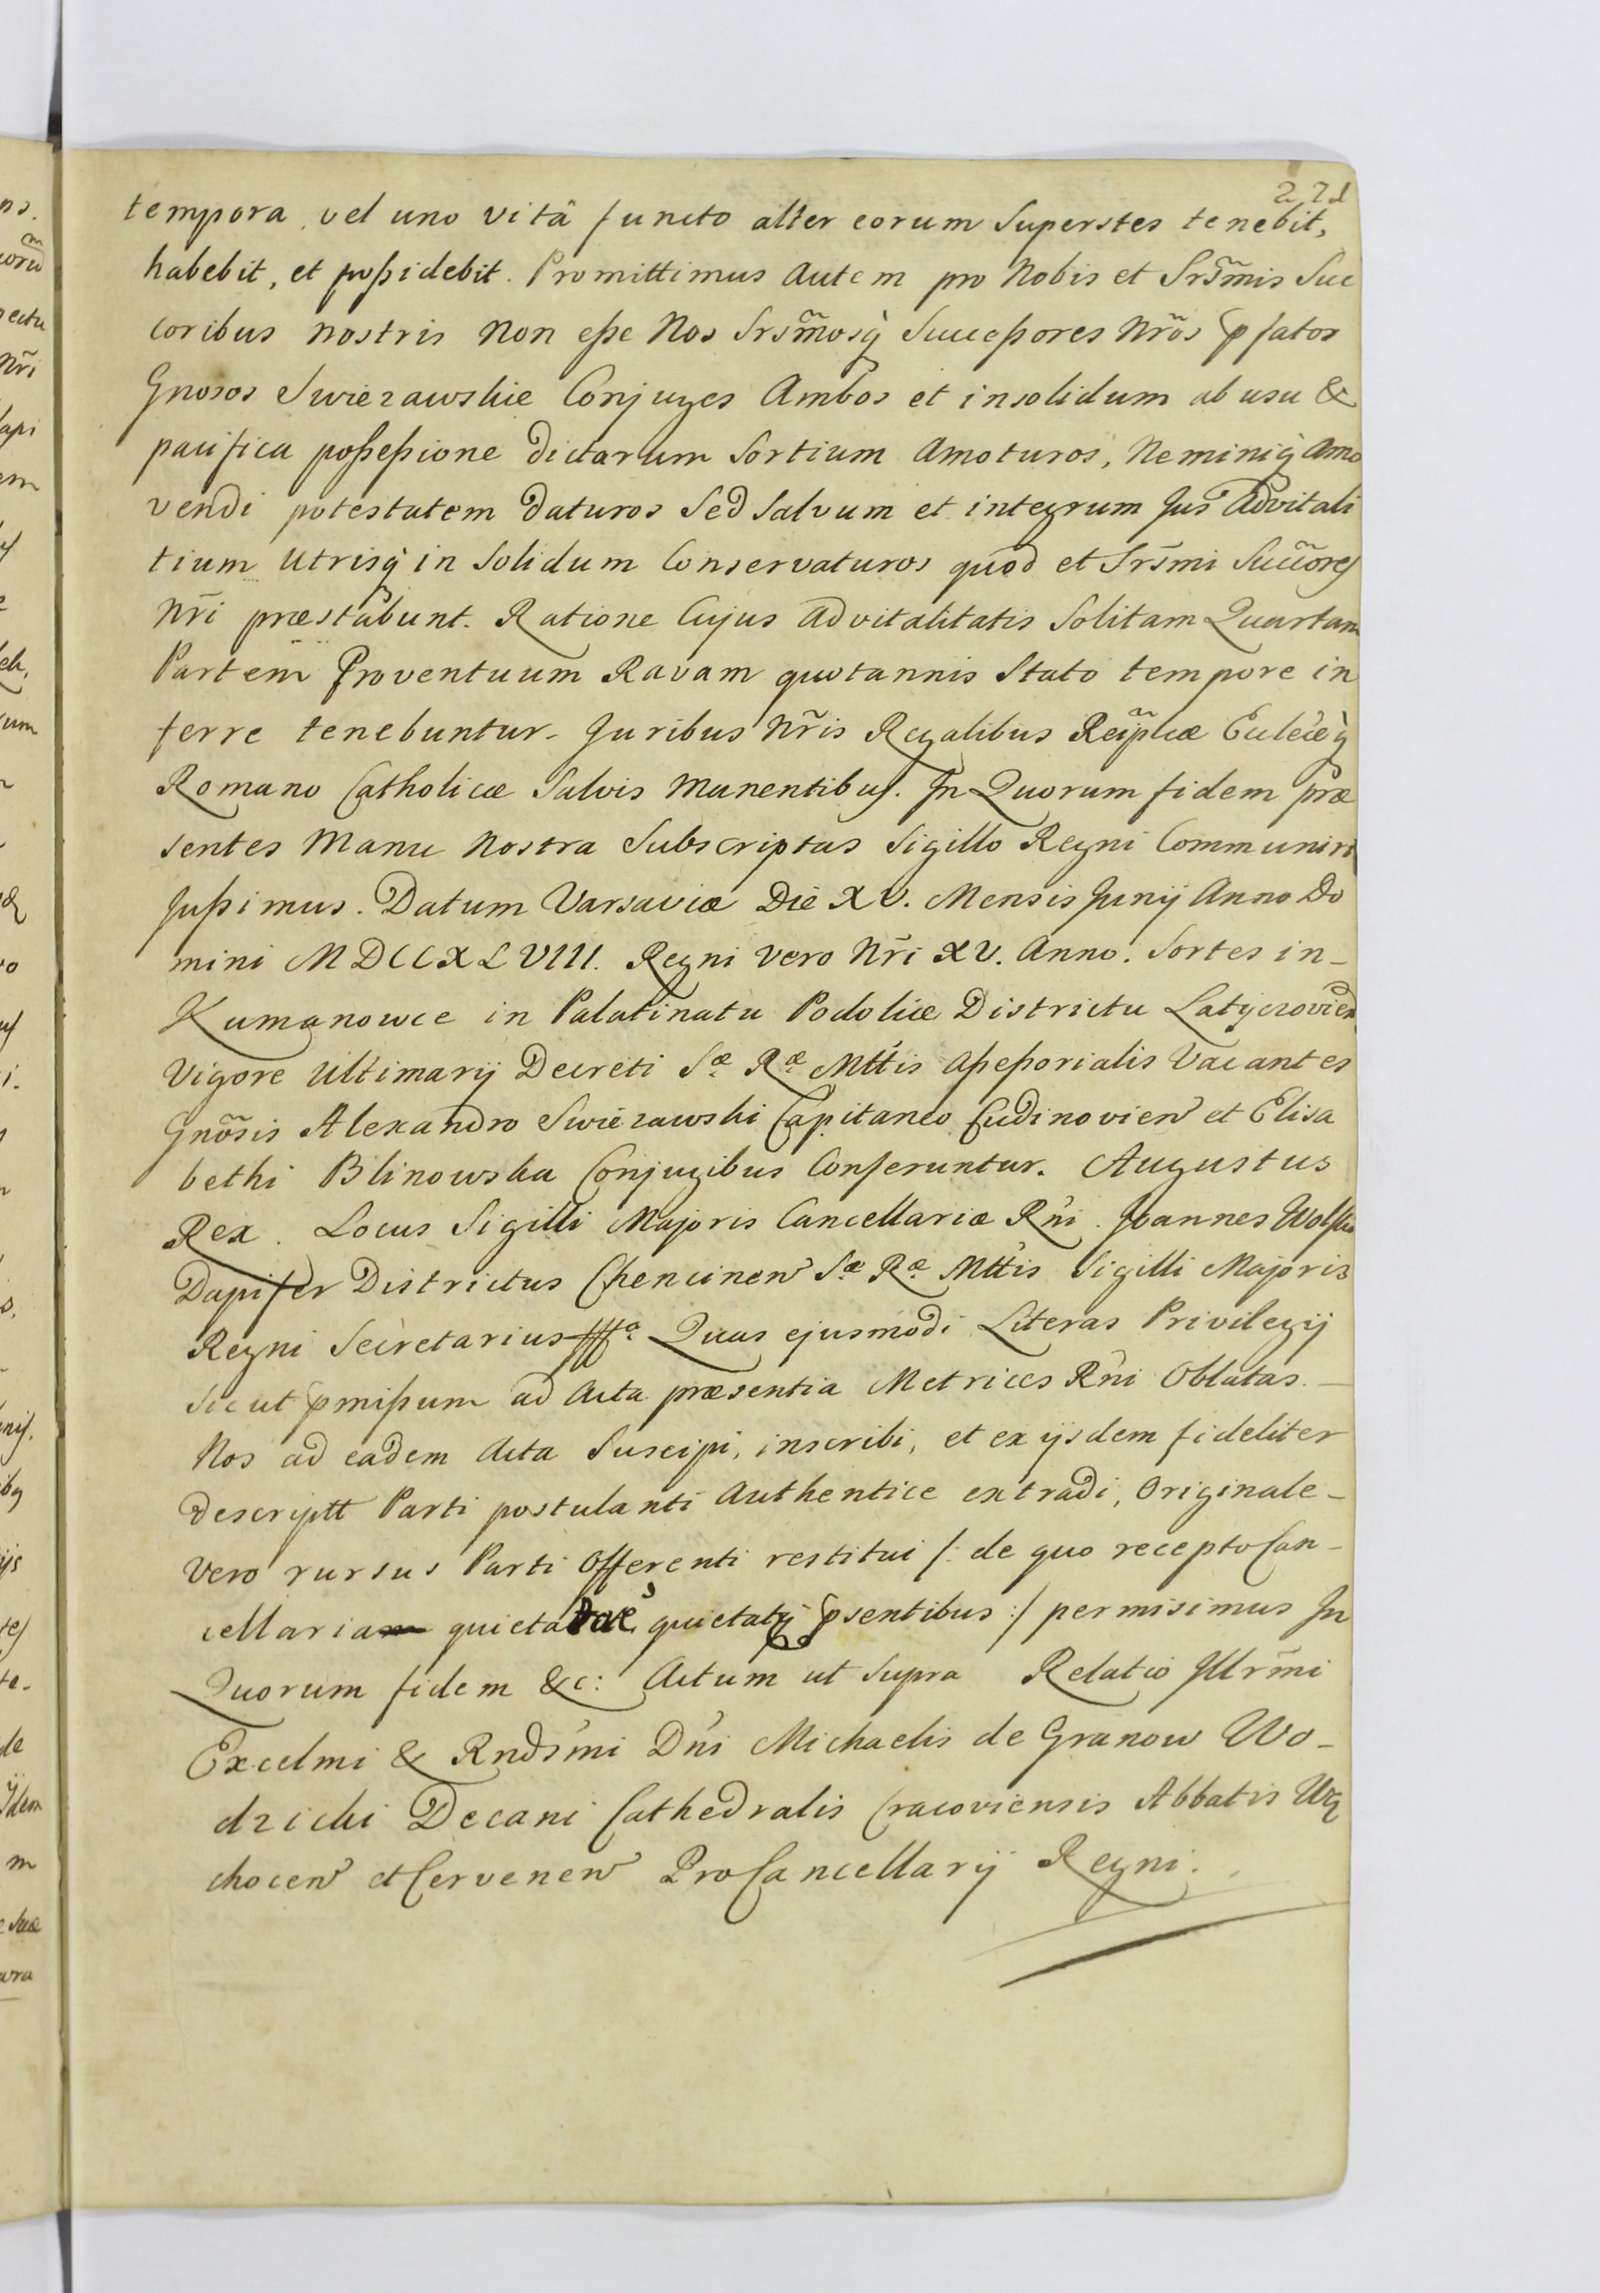 271
tempora, vel uno vitâ functo alter eorum Superstes tenebit,
habebit, et poßidebit. Promittimus autem pro Nobis et Srs̃mis Suc
coribus nostris non eße Nos Srsm̃osq̀ Succeßores Nr̃os p̱fatos
Gnosos Swierzawskie Conjuges Ambos et insolidum ab usu &
pacifica poßeßione dictarum Sortium Amoturos, Neminiq̀ Amo
vendi potestatem daturos Sed Salvum et integrum Jus Advitali
tium Utrisq̀ in Solidum Conservaturos quod et Srs̃mi Succõres
Nr̃i præstabunt. Ratione Cujus Advitalitatis Solitam Quartam
Partem Proventuum Ravam quotannis Stato tempore in
ferre tenebuntur. Juribus Nr̃is Regalibus Reip̃licæ Ecclẽæq̀
Romano Catholicæ Salvis Manentibus. In Quorum fidem præ
sentes Manu Nostra Subscriptas Sigillo Regni Communiri
Jußimus. Datum Varsaviæ Die XV. Mensis Junij Anno Do
mini MDCCXLVIII. Regni Vero Nr̃i XV. Anno. Sortes in-
Kumanowce in Palatinatu Podoliæ Districtu Latyczovien
Vigore Ultimarij Decreti Sæ Ræ Mttis Aßeßorialis Vacantes
Gnõsis Alexandro Swierzawski Capitaneo Cudinovien et Elisa
bethi Blinowska Conjugibus Conferuntur. Augustus
Rex. Locus Sigilli Majoris Cancellariæ Rn̄i. Joannes Wolski
Dapifer Districtus Chencinen Sæ Ræ Mttis Sigilli Majoris
Regni Secretarius Quas ejusmodi Literas Privilegij
Sicut p̱mißum ad Acta præsentia Metrices Rn̄i Oblatas
Nos ad eadem Acta Suscipi, inscribi, et ex ijsdem fideliter
descriptt Parti postulanti Authentice extradi, Originale-
Vero rursus Parti Offerenti restitui /: de quo recepto Can-
cellaria quieta quietatq̀ p̱sentibus :/ permisimus In
Quorum fidem &c: Actum ut Supra Relatio Illr̃mi
Excelmi & Rnds̃mi Dn̄i Michaelis de Granow Wo-
dzicki Decani Cathedralis Cracoviensis Abbatis Wą
chocen et Cervenen ProCancellarij Regni.